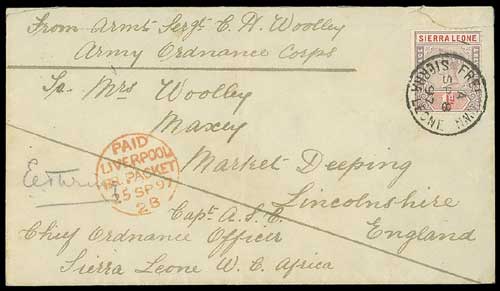 From Armt Sergt C. H. Woolley
Army Ordnance Corps
SIERRA LEONE
To Mrs Woolley
Maxey
Market Deeping
Lincolnshire
England
FREETOWN
SIERRA LEONE
SP 8
97
1d
PAID
LIVERPOOL
PACKET
25 SP 97
2B
Capt A.S.C.
Chief Ordnance Officer
Sierra Leone W. C. Africa